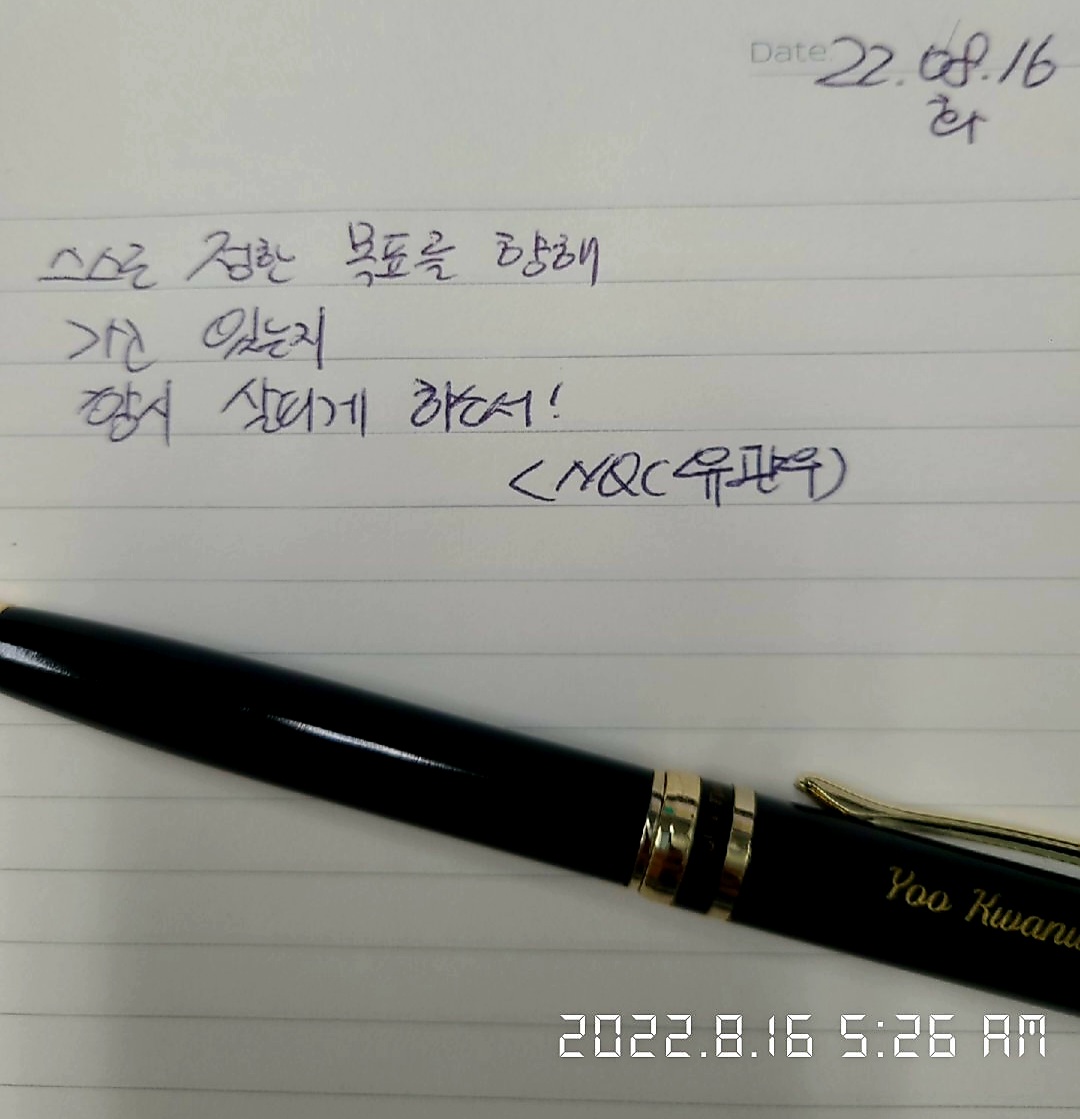 Date 22.08.16
화
스스로 정한 목표를 향해
가고 있는지
항시 살피게 하소서!
<NQC 유관우>
Yoo Kwanu
2022.8.16 5:26 AM